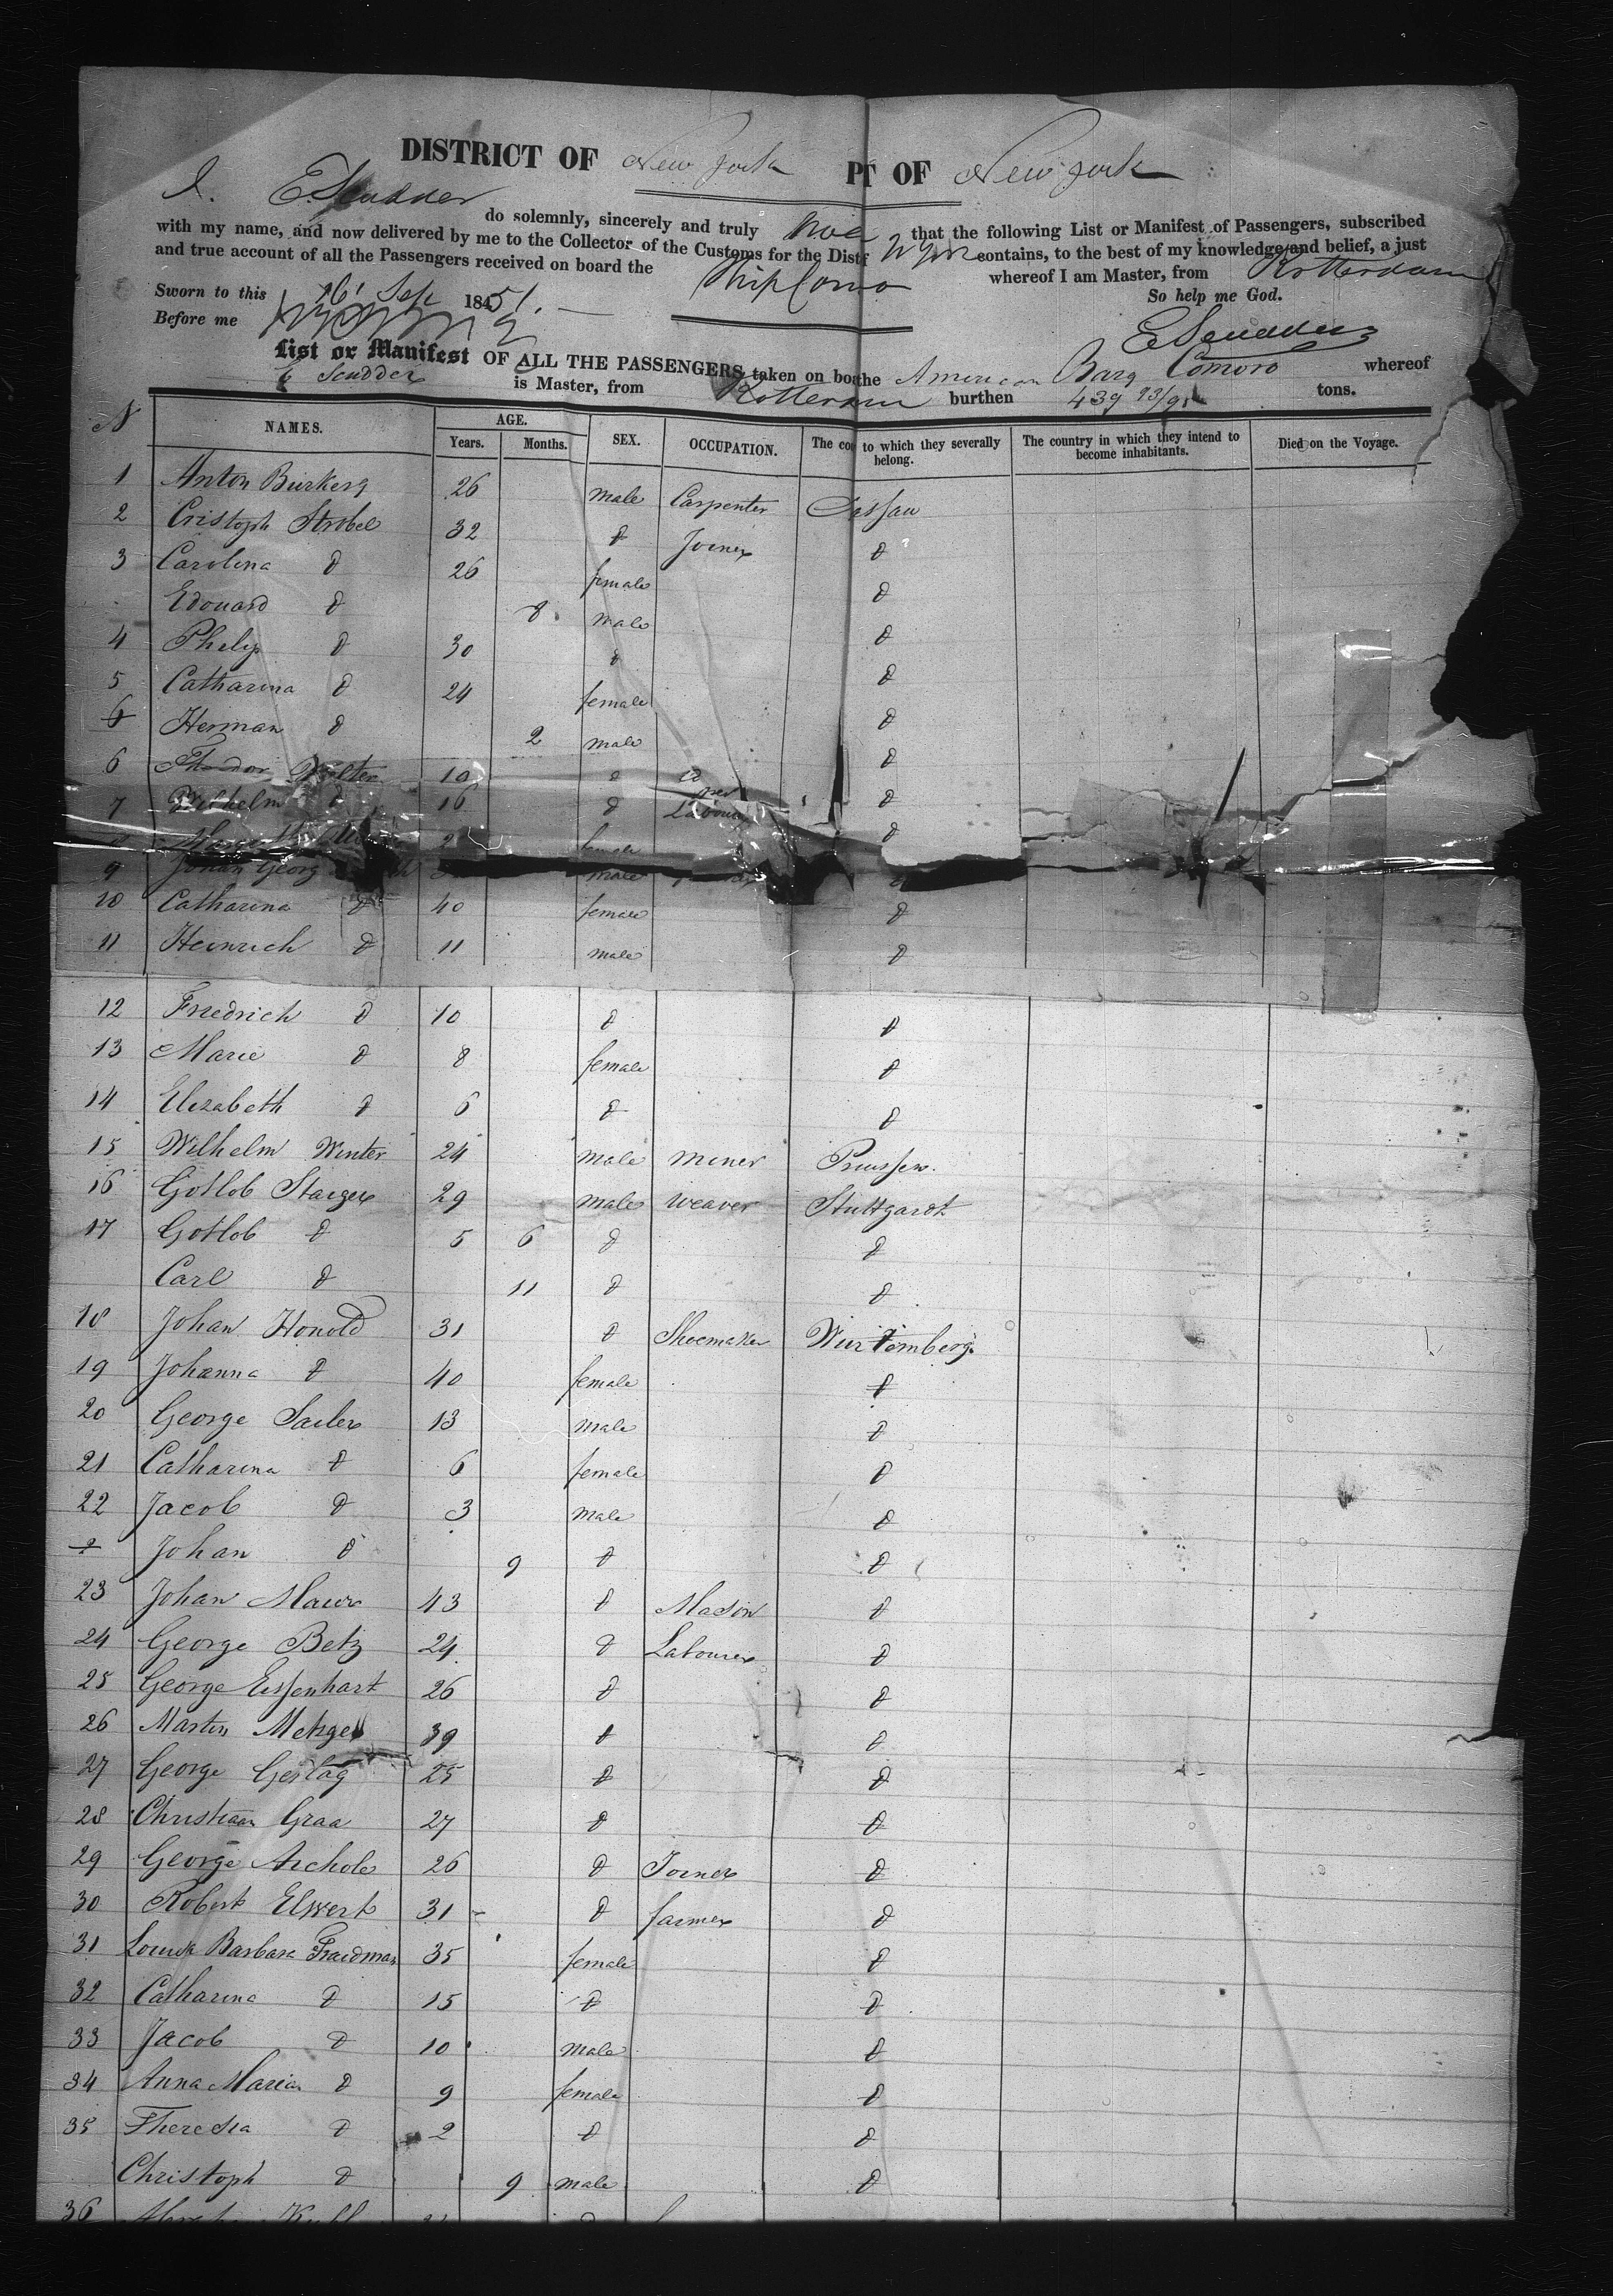 DISTRICT OF New York PT OF New York
I. E. Scudder do solemnly, sincerely and truly that the following List or Manifest of Passengers, subscribed
with my name, and now delivered by me to the Collector of the Customs for the Dist N York contains, to the best of my knowledge and belief, a just
and true account of all the Passengers received on board the Ship Como whereof I am Master, from Rotterdam
Sworn to this 16 Sep 1851. So help me God.
Before me E Scudder
List or Manifest OF ALL THE PASSENGERS taken on bo the American Barq Comoro whereof
E Scudder is Master, from Rotterdam burthen 439 93/95 tons.
N NAMES. AGE. Years. Months. SEX. OCCUPATION. The cou to which they severally belong. The country in which they intend to become inhabitants. Died on the Voyage.
1 Anton 26 male Carpenter
2 Cristoph Strobel 32 d Joiner d
3 Carolina d 26 female d
Edouard d 8 male d
4 Philip d 30 d d
5 Catharina d 24 female d
6 Herman d 2 male d
6 10 d d
7 Wilhelm d 16 d Labourer d
9 Johan Georg male
10 Catharina d 40 female d
11 Heinrich d 11 male d
12 Friedrich d 10 d d
13 Marie d 8 female d
14 Elizabeth d 6 d d
15 Wilhelm Winter 24 male miner Preussen.
16 Gotlob Staiger 29 male weaver Stuttgardt
17 Gotlob d 5 6 d d
Carl d 11 d d
18 Johan Honold 31 d Shoemaker Würtemberg.
19 Johanna d 40 female d
20 George Sailer 13 male d
21 Catharina d 6 female d
22 Jacob d 3 male d
Johan d 9 d d
23 Johan Maur 43 d Mason d
24 George Betz 24 d Labourer d
25 George Eissenhart 26 d d
26 Martin Metzger 39 d d
27 George Gerlag 25 d d
28 Christiaan Graa 27 d d
29 George Aichole 26 d Joiner d
30 Robert Elwert 31 d farmer d
31 Louisa Barbara Fraidman 35 female d
32 Catharina d 15 d d
33 Jacob d 10 male d
34 Anna Maria d 9 female d
35 Theresia d 2 d d
Christoph d 9 male d
36